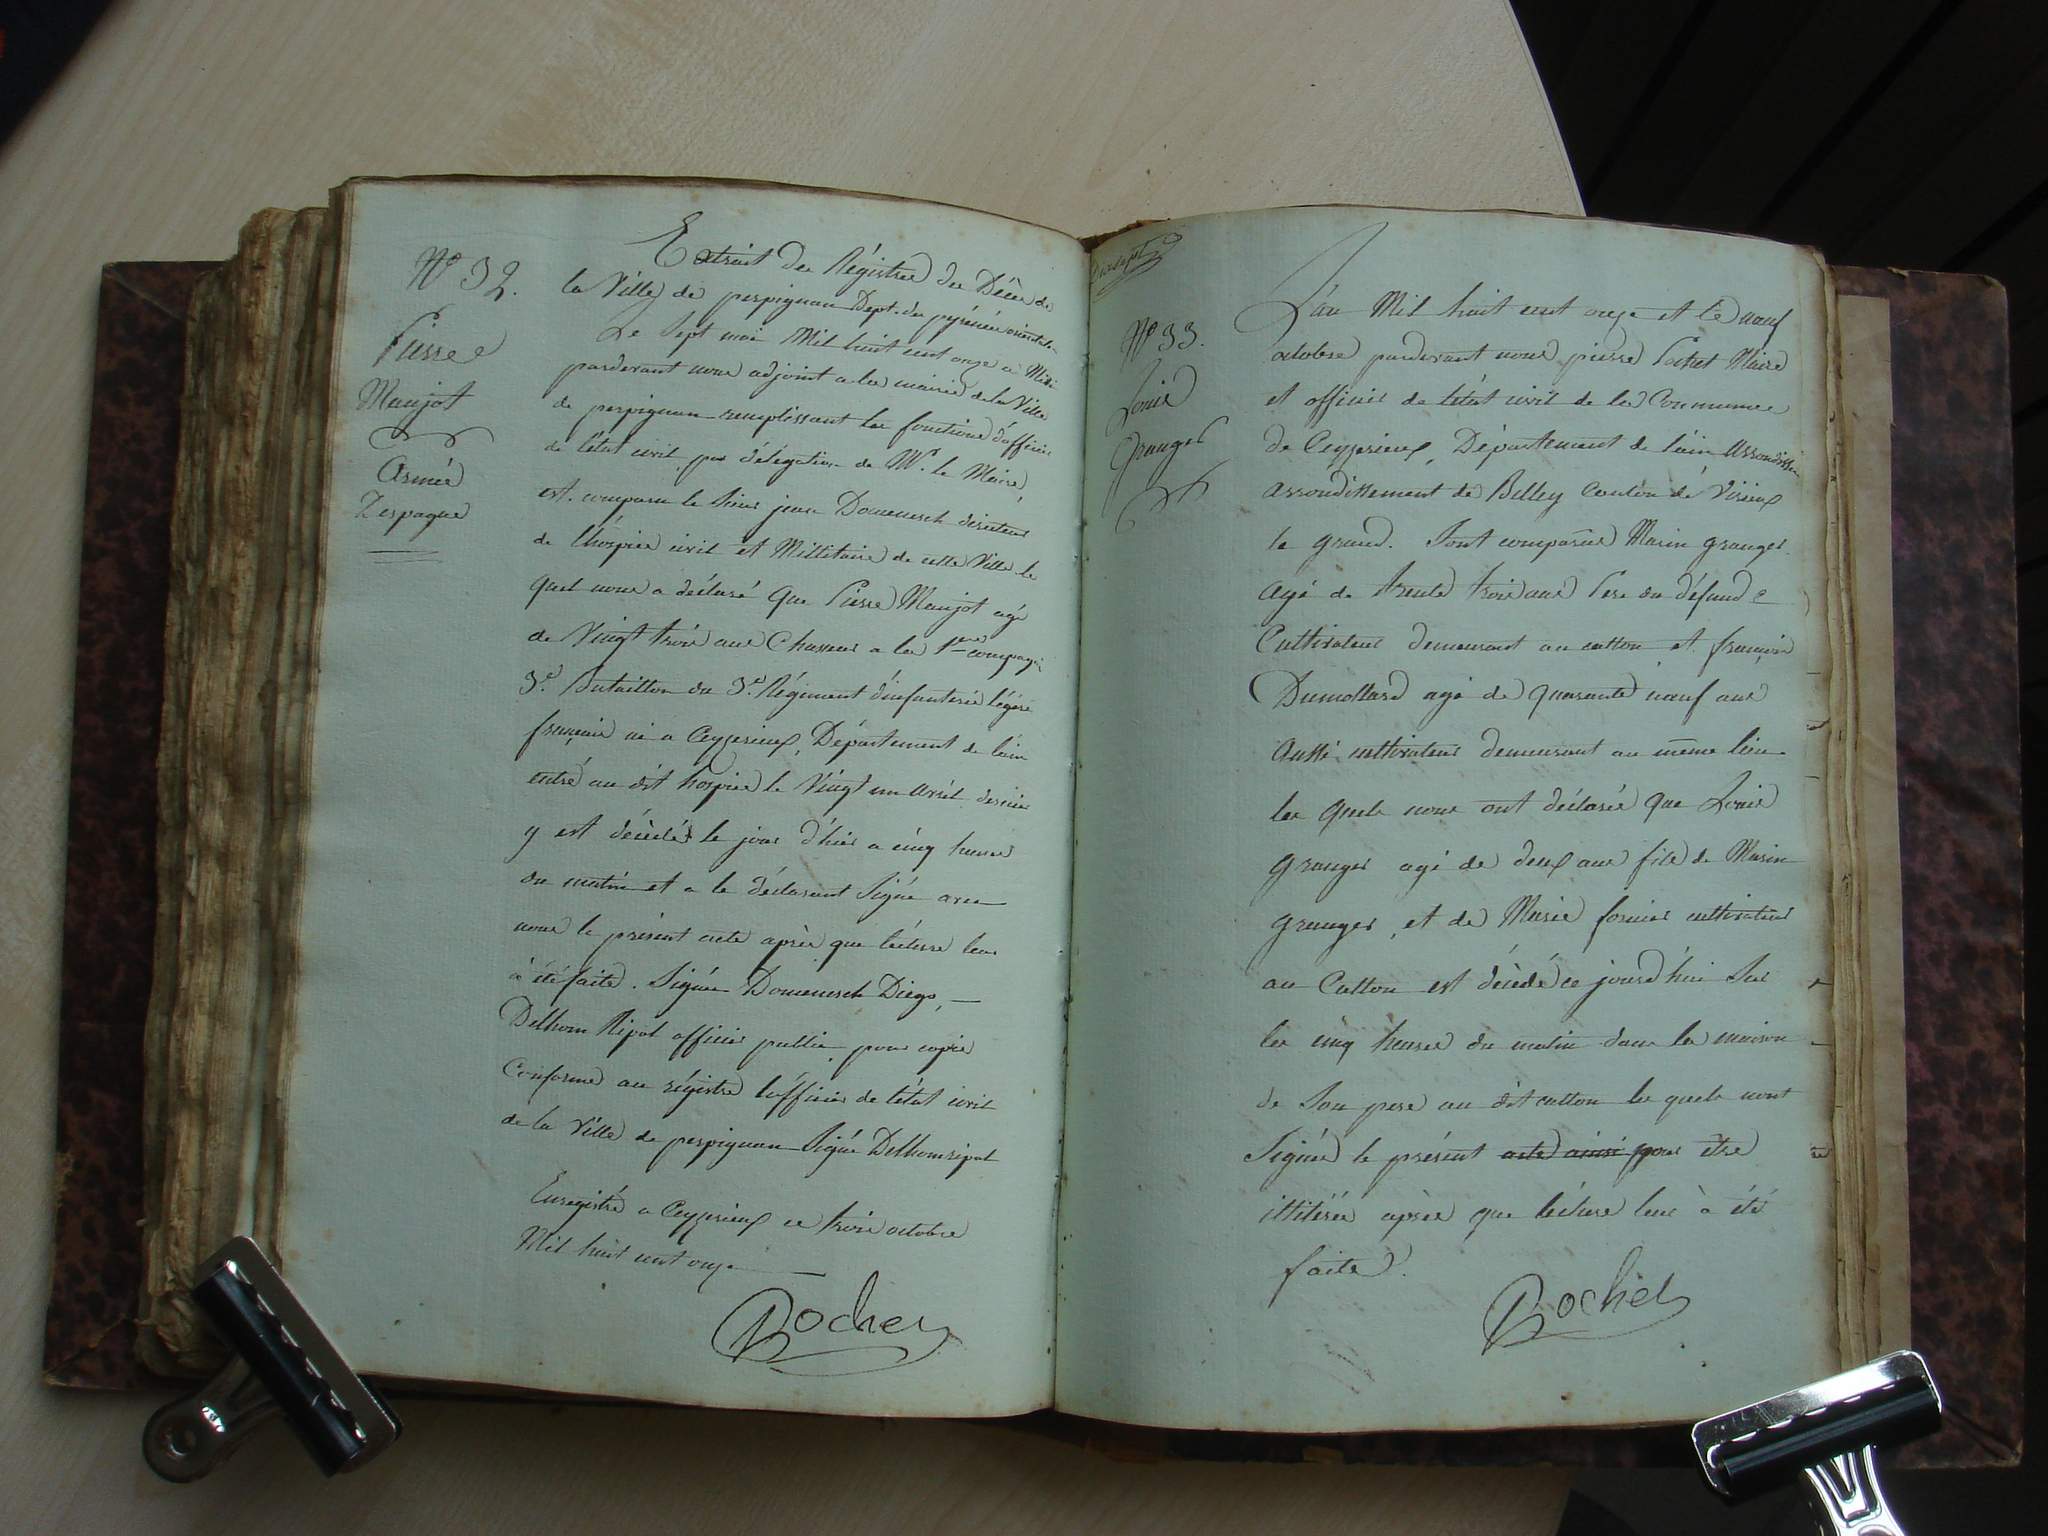 Extrait des Régistres des Décès de
la Ville de perpignan Dept. des pyrénées orientales
N° 32.
Pierre
Maujot
Armée
d'espagne
Le Sept mai Mil huit cent onze a Midi
pardevant nous adjoint a la mairie de la Ville
de perpignan remplissant les fonctions d'officier
de l'état civil par délégation de Mr. le Maire,
est comparu le Sieur jean Domenech directeur
de l'hospice civil et Millitaire de cette Ville le
quel nous a déclaré que Pierre Maujot agé
de Vingt trois ans Chasseur a la 1ere compagnie
3e. Bataillon du 3e. Régiment d'infanterie légère
française né a Ceyzerieux, Département de l'ain
entré au dit hospice le Vingt un avril dernier
y est décédé le jour d'hier a cinq heures
du matin et a le déclarant Signé avec
nous le présent acte après que lécture leur
à été faite. Signés Domenech Diego,
Delhom Ripol officier public, pour copie
Conforme au régistre l'officier de l'état civil
de la Ville de perpignan Signé Delhomripol
Enregistré a Ceyzerieux ce trois octobre
Mil huit cent onze
Rochet
dixsept
N° 33.
Louis
Granger
L'an Mil huit cent onze et le neuf
octobre pardevant nous pierre Rochet Maire
et officier de l'état civil de la Commune
de Ceyzerieux, Département de l'ain Arrondissem
arrondissement de Belley canton de Virieux
le grand. Sont comparus Marin granger
agé de trente trois ans Pere du défund
Cultivateur demeurant au catton et françois
Dumollard agé de quarante neuf ans
aussi cultivateur demeurant au même lieu
les quels nous ont déclarés que Louis
granger agé de deux ans fils de Marin
granger, et de Marie fornier cultivateurs
au Catton est décédé ce jourd'hui Sur
les cinq heures du matin dans la maison
de Son pere au dit catton les quels n'ont
Signés le présent acte ainsi pour être
illitérés après que lécture leur à été
faite.
Rochet